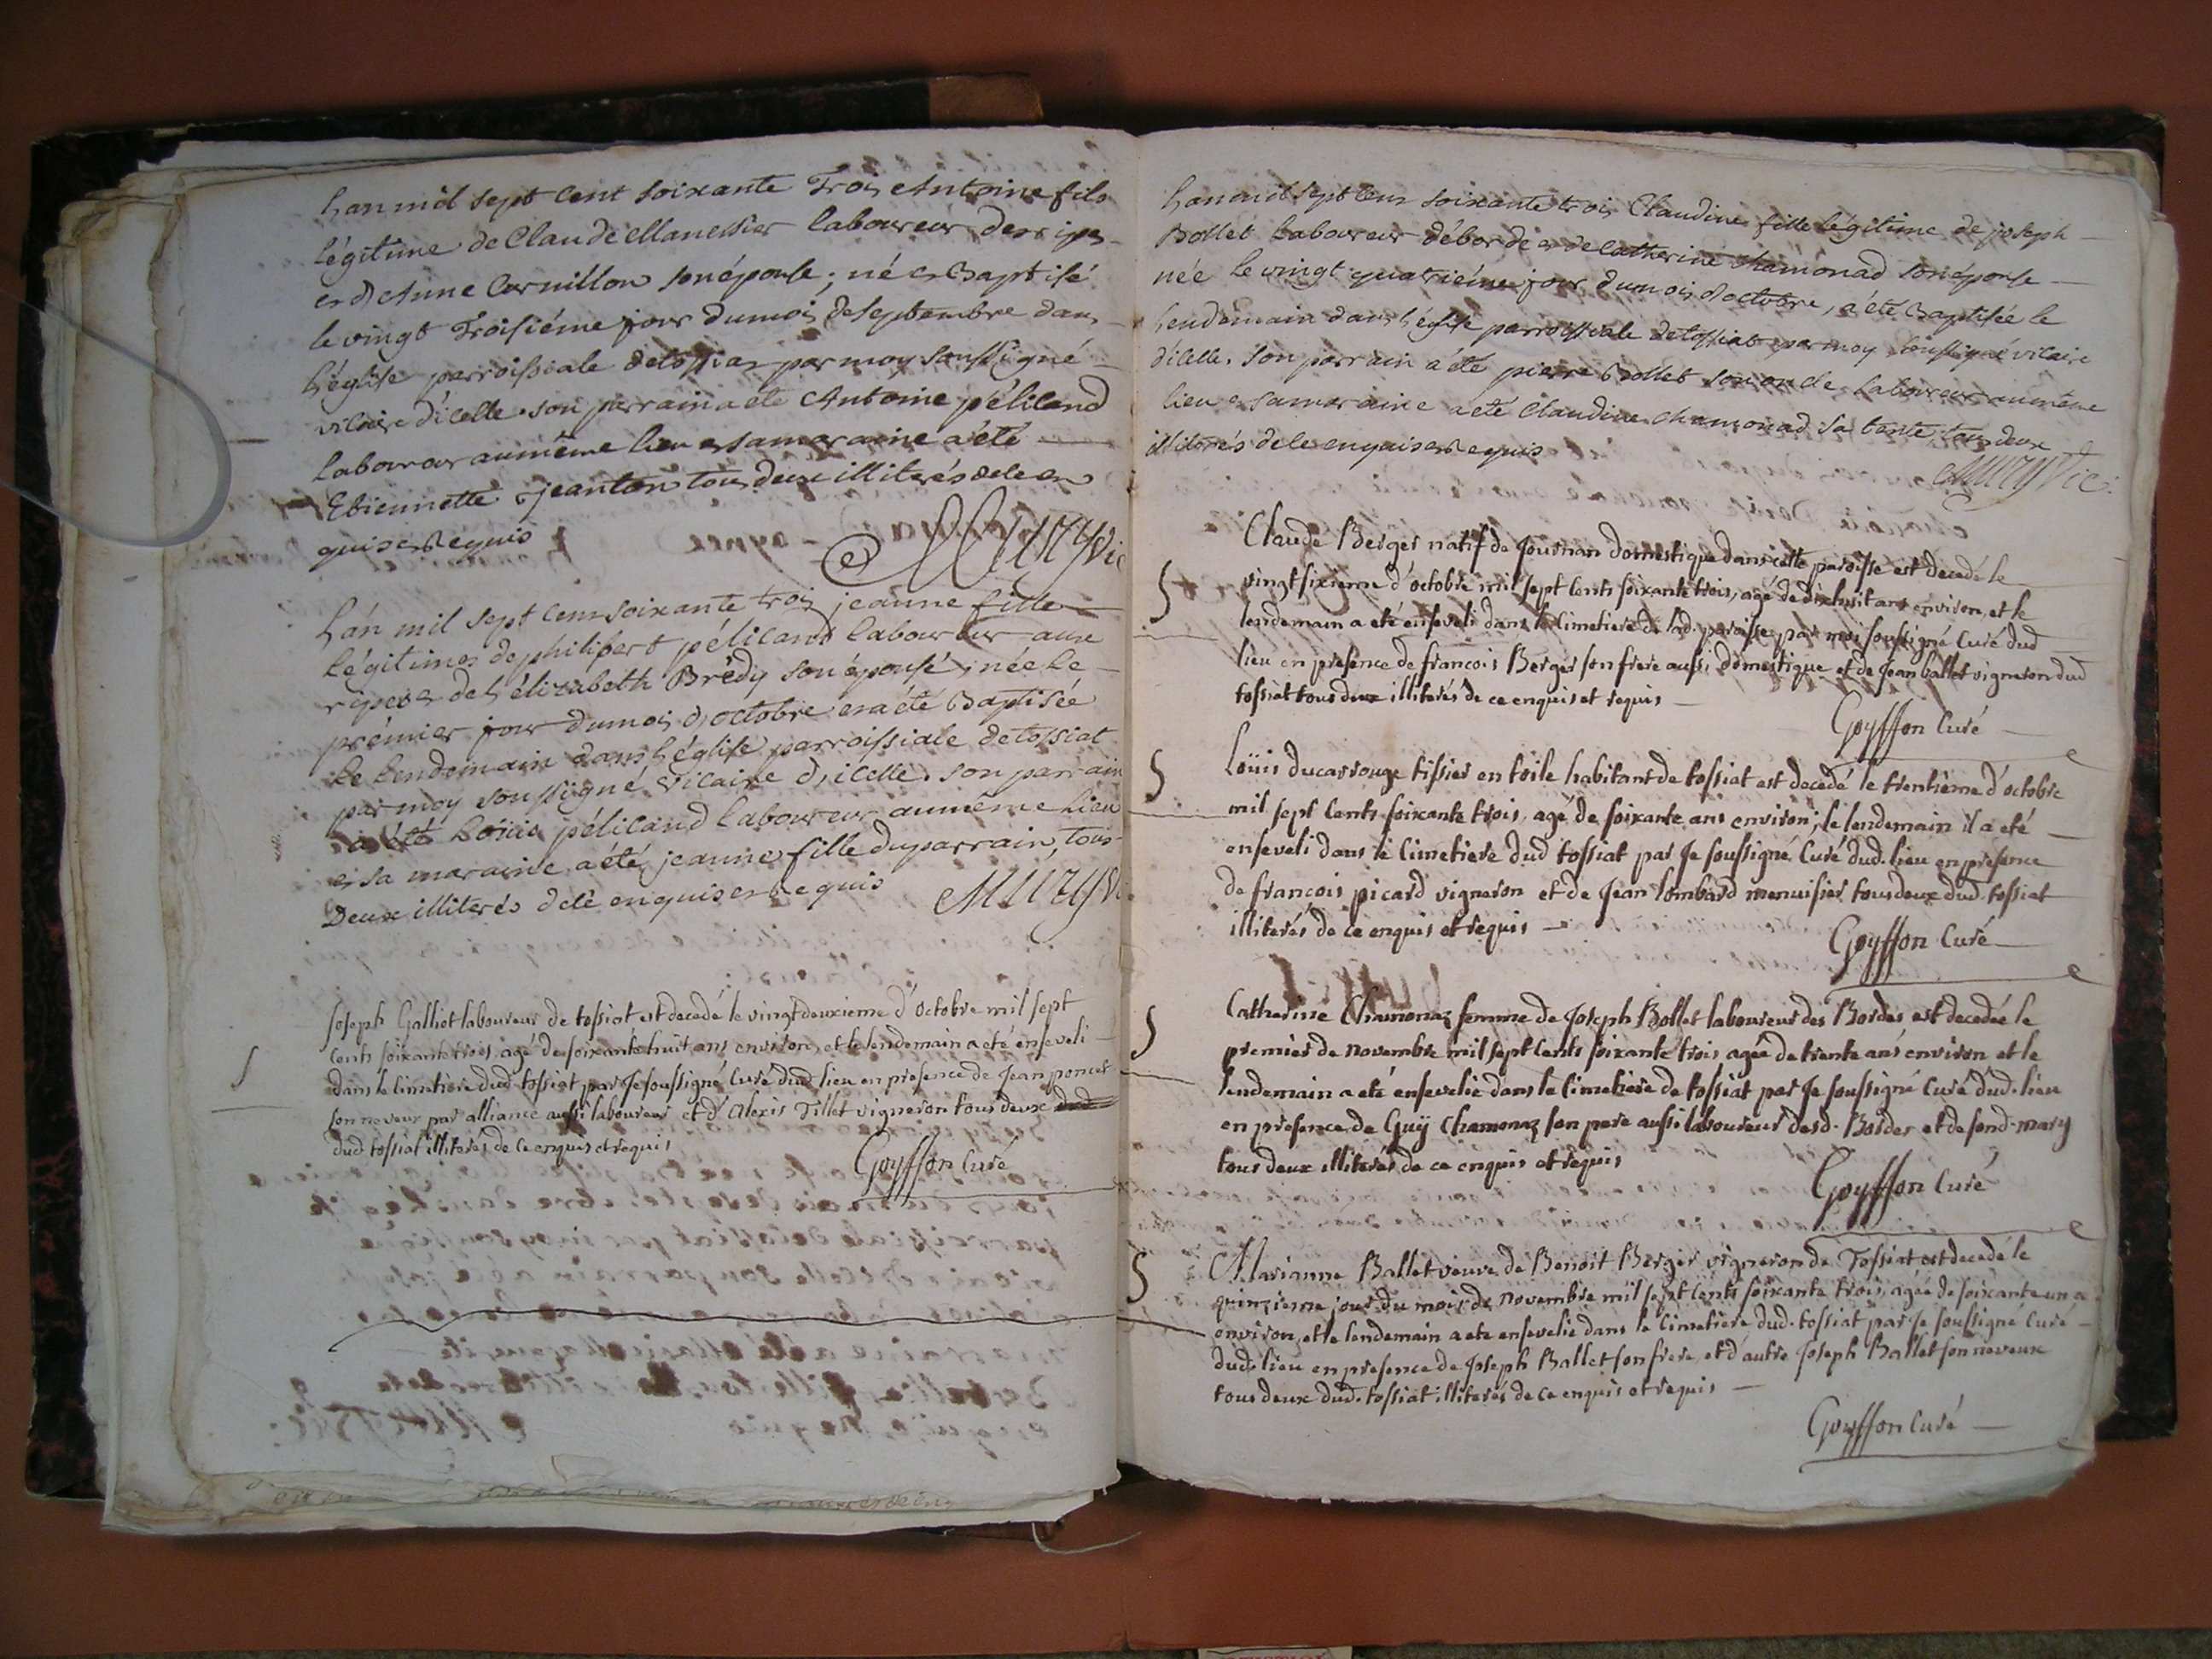 L'an mil sept cent soixante Trois Antoine fils
légitime de Claude Manessier laboureur des ripes
et d'Anne Cornillon son épouse; né et Baptisé
le vingt Troisiéme jour du mois de septembre dans
l'église parroissiale de tossiat par moy soussigné
vicaire d'icelle. son parrain a été Antoine pélicand
laboureur au même lieu et sa maraine a été
Etiennette jeanton tous deux illiterés de ce en
quis et Requis
Mury vic
L'an mil sept cens soixante trois jeanne fille
légitimes de philibert pélicand laboureur aux
ripes et de élizabeth Brédy son épouse, née le
prémier jour du mois d'octobre et a été Baptisée
le lendemain dans l'église parroissiale de tossiat
par moy soussigné vicaire d'icelle. son parrain
a été Loüis pélicand laboureur au même lieu
et sa maraine a été jeanne fille du parrain, tous
Deux illiterés de ce enquis et Requis Mury Vi
Joseph Galliot laboureur de tossiat est decedé le vingt deuxieme d'octobre mil sept
cents soixante trois, agé de soixante huit ans environ, et le lendemain a eté enseveli
dans le cimetiere dud. tossiat par je soussigné Curé dud. lieu en presence de Jean poncet
son neveux par alliance aussi laboureur et d'Alexis Tillet vigneron tous deux dud
dud. tossiat illiterés de ce enquis et requis
Goyffon Curé
L'an mil sept cens soixante trois Claudine fille légitime de joseph
Bollet laboureur dé bordes et de Catherine Chamonad son épouse
née le vingt quatriéme jour du mois d'octobre, a été Baptisée le
lendemain dans l'église parroissiale de tossiat par moy soussigné vicaire
d'icelle. son parrain a été pierre Bollet son oncle laboureur au même
lieu et sa maraine a été Claudine chamonad sa tante tous deux
illiterés de ce enquis et Requis
Mury Vic.
Claude Berger natif de Journan domestique dans cette paroisse est decedé le
vingt sixieme d'octobre mil sept cents soixante trois, agé de dixhuit ans environ, et le
lendemain a eté enseveli dans le cimetiere de lad. paroisse par moi soussigné Curé dud
lieu en presence de francois Berger son frere aussi domestique et de Jean ballet vigneron dud
tossiat tous deux illiterés de ce enquis et requis
Goyffon Curé
Loüis ducarrouge tissier en toile habitant de tossiat est decedé le trentième d'octobre
mil sept cents soixante trois, agé de soixante ans environ; le lendemain il a eté
enseveli dans le cimetiere dud tossiat par je soussigné Curé dud. lieu en presence
de francois picard vigneron et de Jean lombard menuisier tous deux dud. tossiat
illiterés de ce enquis et requis
Goyffon Curé
Catherine Chamonaz femme de Joseph Bollet laboureur des Bordes est decedée le
premier de novembre mil sept cents soixante trois agée de trente ans environ et le
lendemain a eté ensevelie dans le cimetiere de tossiat par je soussigné Curé dud. lieu
en presence de Guÿ Chamonaz son pere aussi laboureur desd. Bordes et de sond. mary
tous deux illiterés de ce enquis et requis
Goyffon Curé
Marianne Ballet veuve de Benoit Berger vigneron de Tossiat est decedé le
quinzieme jour du mois de novembre mil sept cents soixante trois, agée de soixante un a
environ, et le lendemain a eté ensevelie dans le cimetiere dud. tossiat par je soussigné Curé
dud. lieu en presence de Joseph Ballet son frere, et d'autre Joseph Ballet son neveux
tous deux dud. tossiat illiterés de ce enquis et requis
Goyffon Curé